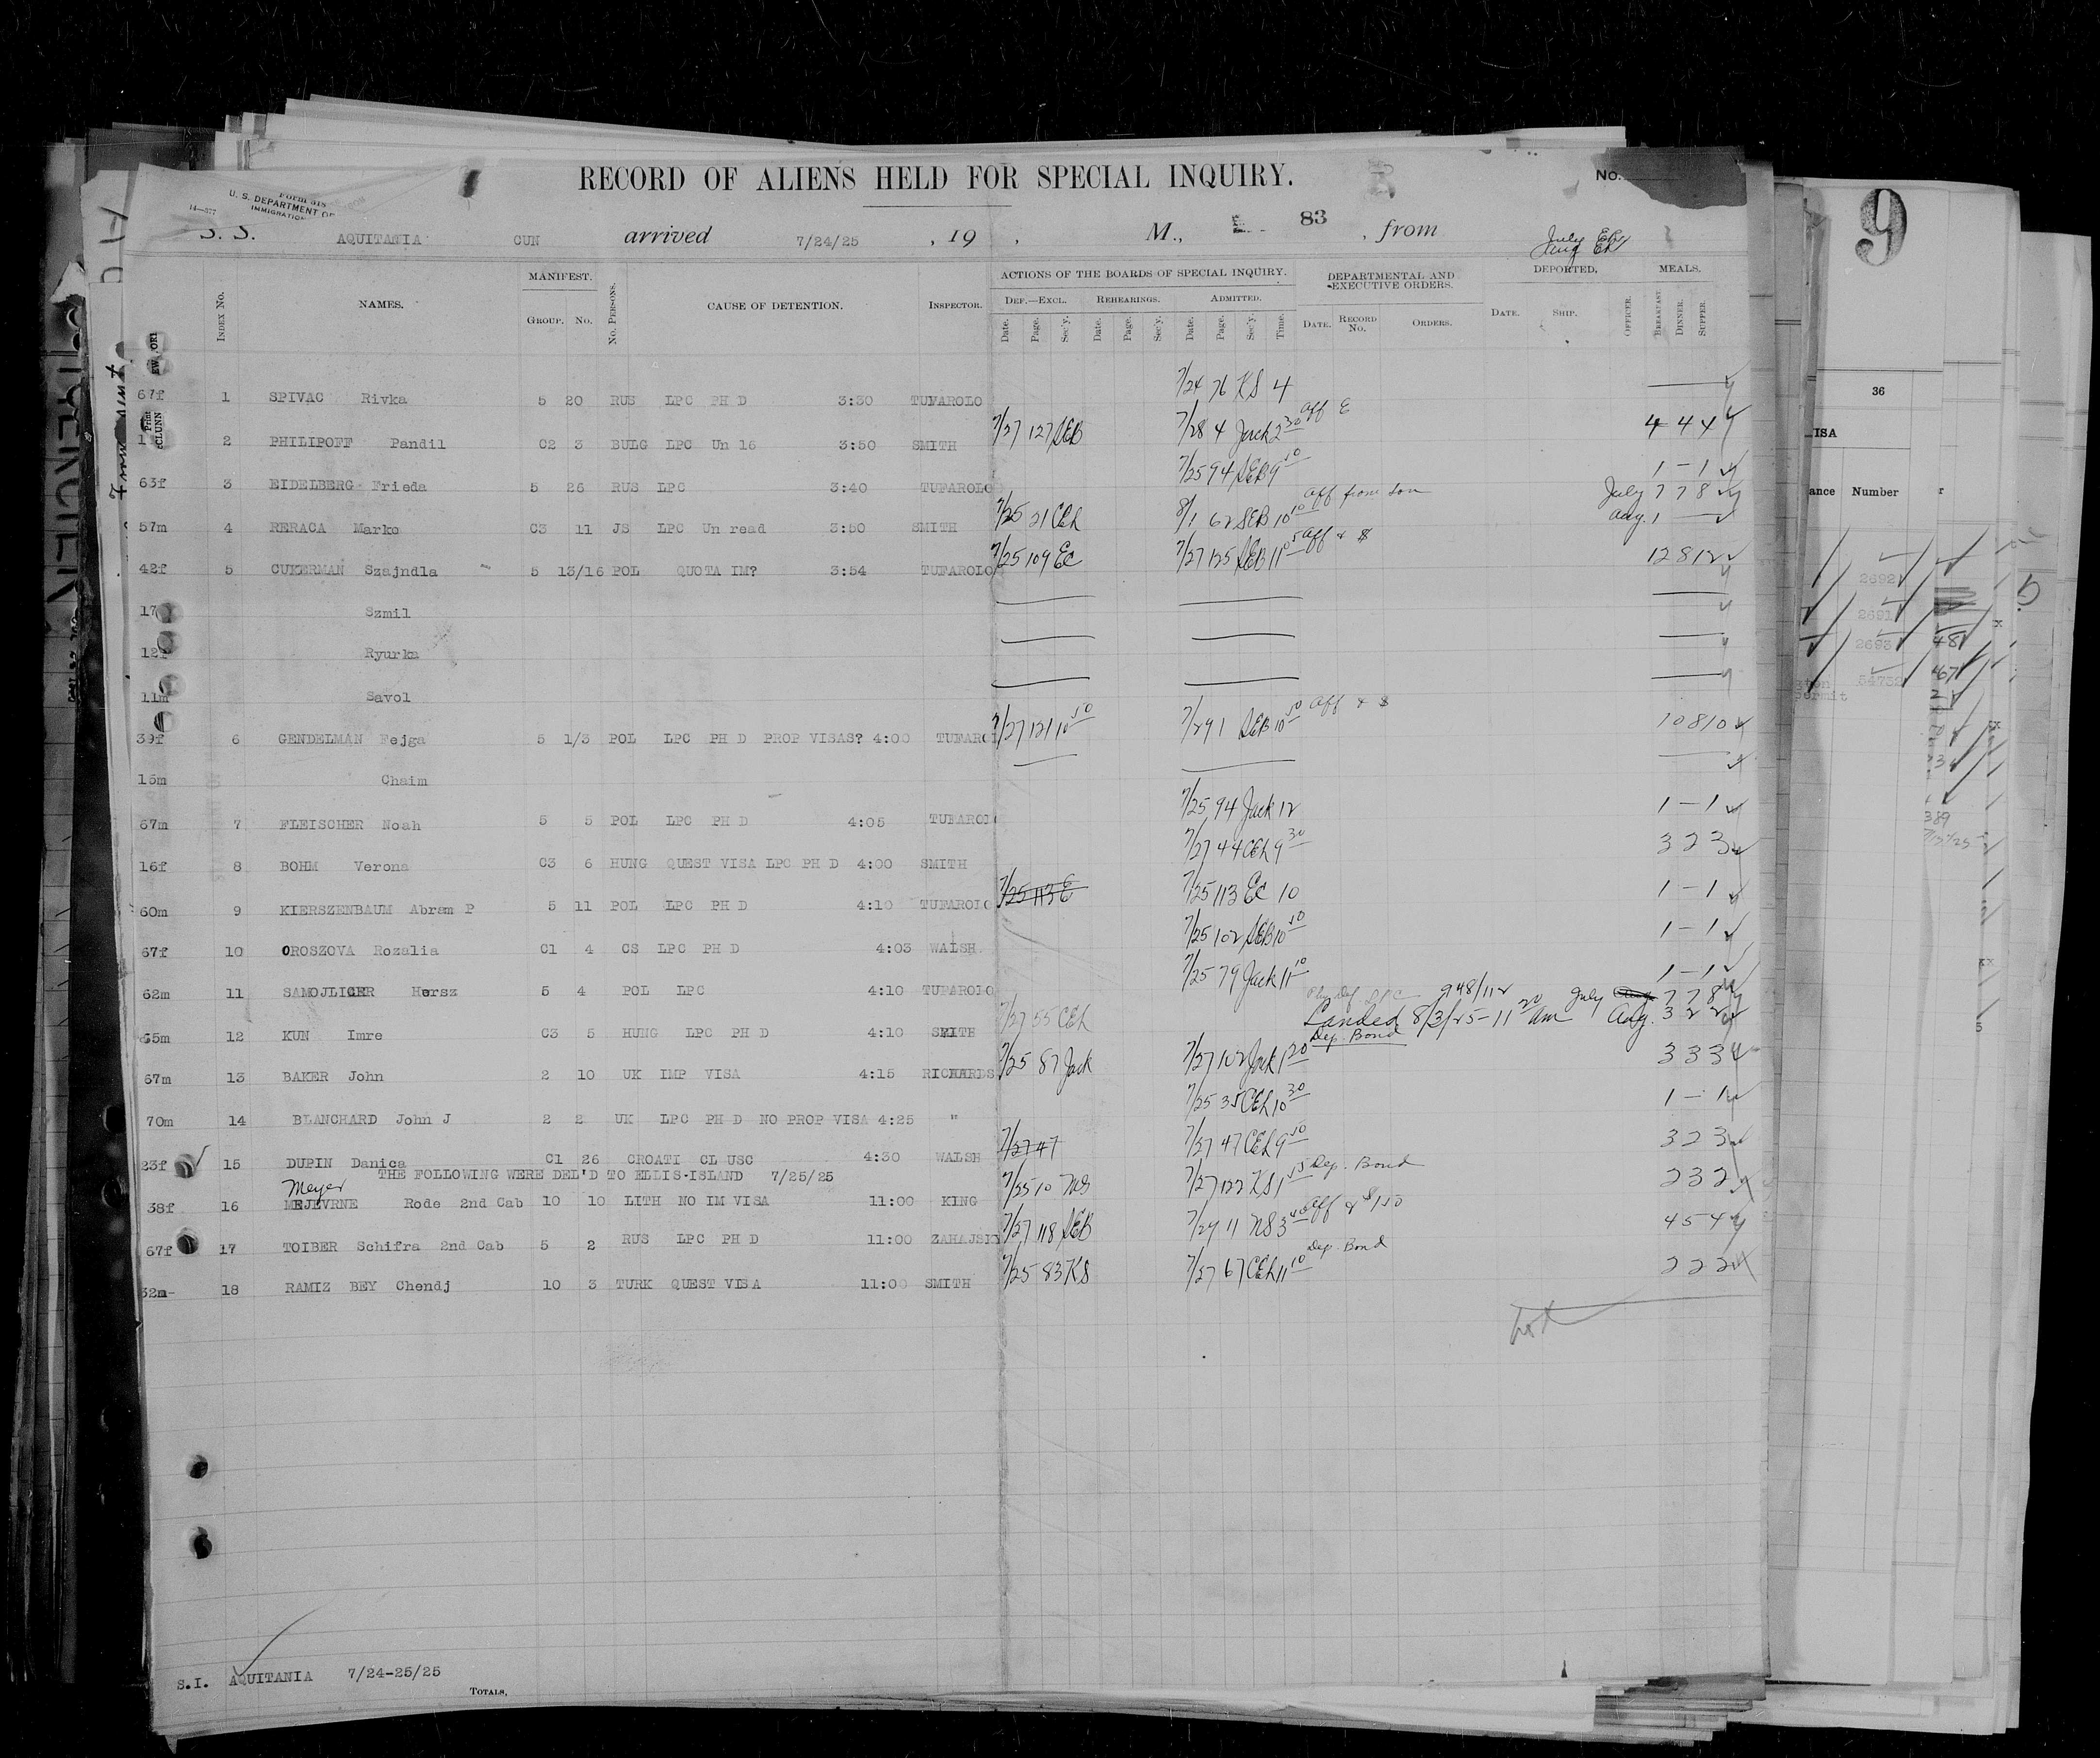 RECORD OF ALIENS HELD FOR SPECIAL INQUIRY.
No.
14—377
Form 315
U. S. DEPARTMENT OF
IMMIGRATION
S. S. AQUITANIA CUN arrived 7/24/25 , 19 , M., 83 , from
July
Aug
INDEX No. NAMES. MANIFEST. GROUP. No. No. PERSONS. CAUSE OF DETENTION. INSPECTOR. ACTIONS OF THE BOARDS OF SPECIAL INQUIRY. DEPARTMENTAL AND EXECUTIVE ORDERS. DEPORTED. MEALS.
DEF.—EXCL. REHEARINGS. ADMITTED.
Date. Page. Sec'y. Date. Page. Sec'y. Date. Page. Sec'y. Time. DATE. RECORD No. ORDERS. DATE. SHIP. OFFICER. BREAKFAST. DINNER. SUPPER.
67f 1 SPIVAC Rivka 5 20 RUS LPC PH D 3:30 TUFAROLO 7/24 76 KS 4
2 PHILIPOFF Pandil C2 3 BULG LPC Un 16 3:50 SMITH 7/27 127 SEB 7/28 4 Jack 2 30 Aff 4 4 4
63f 3 EIDELBERG Frieda 5 26 RUS LPC 3:40 TUFAROLO 7/25 94 SEB 9 50 1 – 1
57m 4 RERACA Marko C3 11 JS LPC Un read 3:50 SMITH 7/25 21 CEh 8/1 62 SEB 10 10 Aff from son July 7 7 8
Aug. 1
42f 5 CUKERMAN Szajndla 5 13/16 POL QUOTA IM? 3:54 TUFAROLO 7/25 109 EC 7/27 125 SEB 11 05 Aff & $ 12 8 12
17 Szmil
12f Ryurka
11m Savol
39f 6 GENDELMAN Fejga 5 1/3 POL LPC PH D PROP VISAS? 4:00 TUFARO 7/27 121 10 50 7/29 1 SEB 10 50 Aff & $ 10 8 10
15m Chaim
67m 7 FLEISCHER Noah 5 5 POL LPC PH D 4:05 TUFAROL 7/25 94 Jack 12 1 – 1
16f 8 BOHM Verona C3 6 HUNG QUEST VISA LPC PH D 4:00 SMITH 7/27 44 CEh 9 30 3 2 3
60m 9 KIERSZENBAUM Abram P 5 11 POL LPC PH D 4:10 TUFAROLO 7/25 113 E 7/25 113 EC 10 1 – 1
67f 10 OROSZOVA Rozalia C1 4 CS LPC PH D 4:03 WALSH. 7/25 102 SEB 10 50 1 – 1
62m 11 SAMOJLICER Hersz 5 4 POL LPC 4:10 TUFAROLO 7/25 79 Jack 11 10 1 – 1
65m 12 KUN Imre C3 5 HUNG LPC PH D 4:10 SMITH 7/27 55 CEh LPC 948/112 July 7 7 8
Landed 8/3/25 – 11 20 am Aug. 3 2 2
Dep. Bond
67m 13 BAKER John 2 10 UK IMP VISA 4:15 RICHARDS 7/25 87 Jack 7/27 102 Jack 1 20 3 3 3
70m 14 BLANCHARD John J 2 2 UK LPC PH D NO PROP VISA 4:25 " 7/25 35 CEh 10 30 1 – 1
23f 15 DUPIN Danica C1 26 CROATI CL USC 4:30 WALSH 7/27 47 7/27 47 CEh 9 50 3 2 3
THE FOLLOWING WERE DEL'D TO ELLIS-ISLAND 7/25/25
Meyer
38f 16 MEJEVRNE Rode 2nd Cab 10 10 LITH NO IM VISA 11:00 KING 7/25 10 NS 7/27 122 KS 1 55 Dep. Bond 2 3 2
67f 17 TOIBER Schifra 2nd Cab 5 2 RUS LPC PH D 11:00 ZAHAJSKY 7/27 118 SEB 7/29 11 NS 3 40 Aff & $150 4 5 4
32m 18 RAMIZ BEY Chendj 10 3 TURK QUEST VISA 11:00 SMITH 7/25 83 KS 7/27 67 CEh 11 10 Dep. Bond 2 2 2
S.I. AQUITANIA 7/24-25/25
TOTALS,
9
36
ISA
ance Number
2692
2691
2693
54732
48
467
389